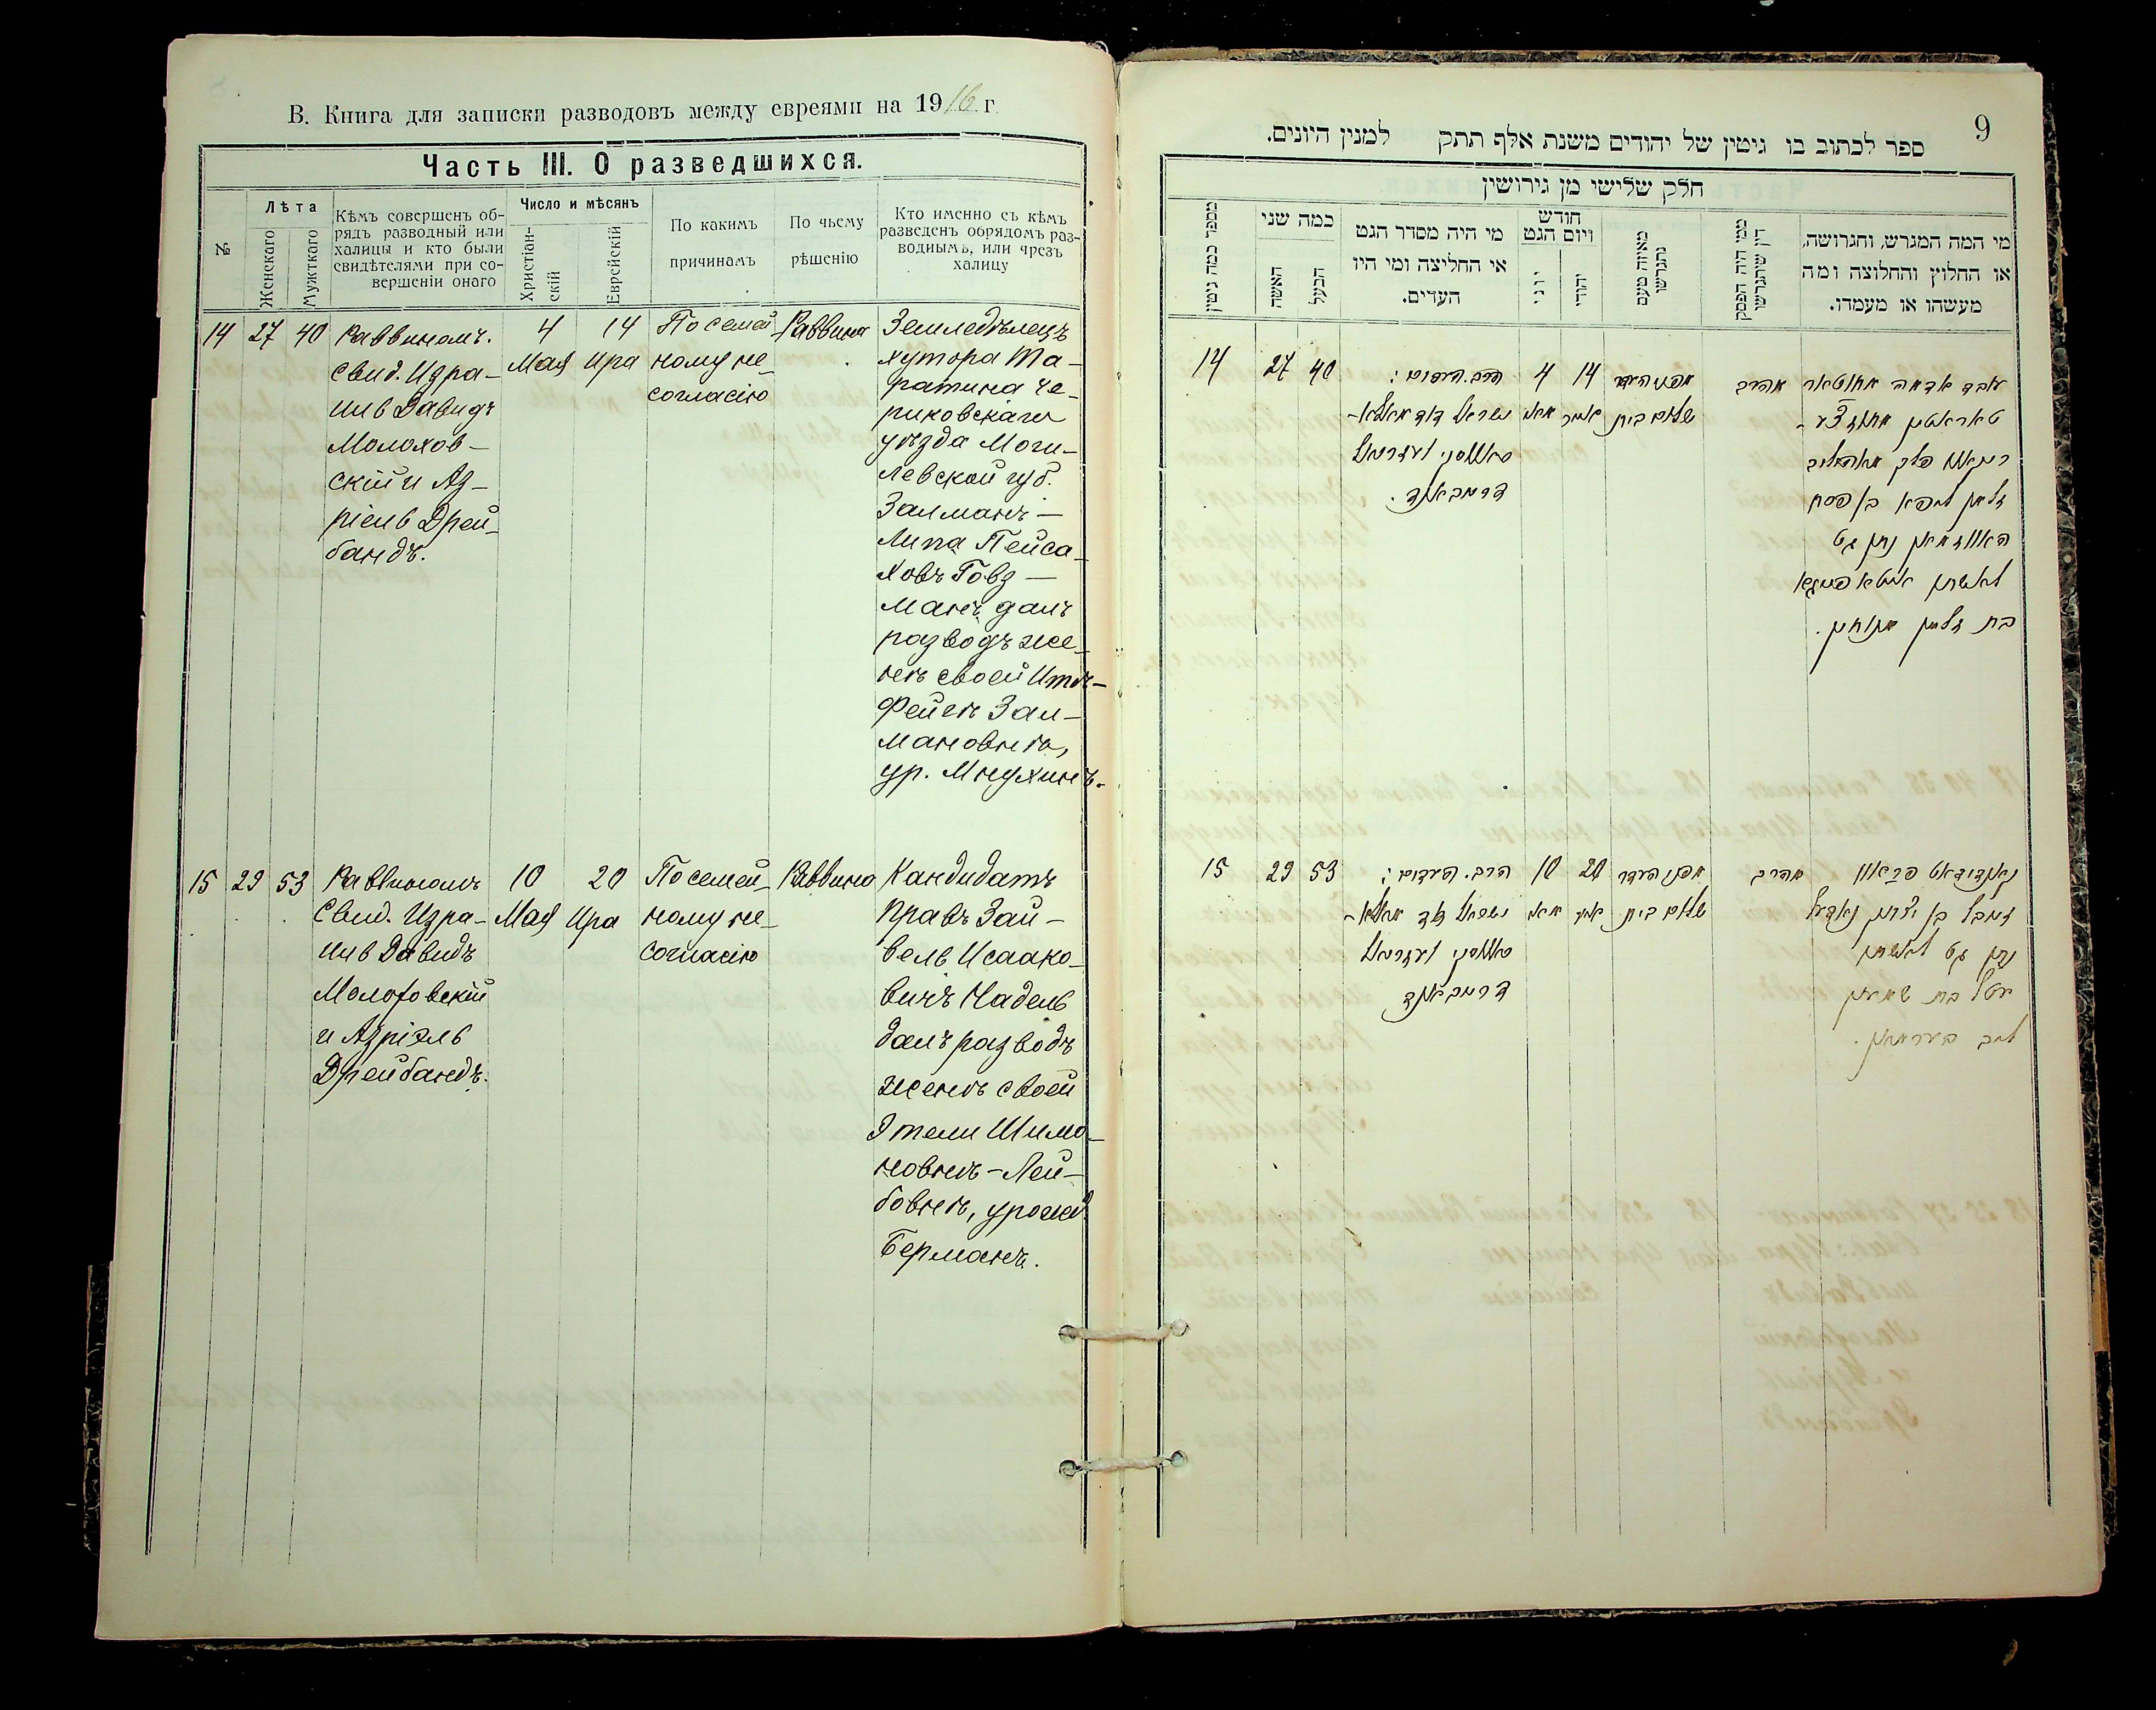 В. Книга для записки разводовъ между евреями на 1916 г.
Часть III. О разведшихся.
№
Лѣта
Женскаго
Мужткаго
Кѣмъ совершенъ об-
рядъ разводный или
халицы и кто были
свидѣтелями при со-
вершеніи онаго
Число и мѣсянъ
Христіан-
скій
Еврейскій
По какимъ
причинамъ
По чьему
рѣшенію
Кто именно съ кѣмъ
разведенъ обрядомъ раз-
воднымъ, или чрезъ
халицу
14 27 40
Раввиномъ.
Свид. Изра-
иль Давидъ
Молохов-
скій и Аз-
ріель Дрей-
бандъ.
4
Мая
14
Ира
По семей
ному не-
согласію
Раввина
Земледѣлецъ
хутора Та-
ратина Че-
риковскаго
уѣзда Моги-
левской губ.
Залманъ-
Липа Пейса-
ховъ Говз-
манъ далъ
разводъ же-
нѣ своей Итѣ-
Фейгѣ Зал-
мановнѣ,
ур. Мнухинъ.
15 29 53
Раввиномъ
Свид. Изра-
иль Давидъ
Молоховскій
и Азріэль
Дрейбандъ.
10
Мая
20
Ира
По семей-
ному не-
согласію
Раввина
Кандидатъ
правъ Зай-
вель Исаако-
вичъ Надель
далъ разводъ
женѣ своей
Этели Шимо-
новнѣ-Лей-
бовнѣ, урожд.
Берманъ.
9
ספר לכתוב בו גיטין של יהודים משנת אלף תתק למנין היונים.
חלק שלישי מן גירושין
מספר כמה גיטין
כמה שני
האשה
הבעל
מי היה מסדר הגט
או החליצה ומי היו
העדים.
חודש
ויום הגט
יוני
יהודי
מאיזה טעם
נתגרשו
ממי היה הפסק
דין שיתגרשו
מי המה המגרש, והגרושה,
או החלוץ והחלוצה ומה
מעשהו או מעמדו.
14 27 40
הרב. העדים:
ישראל דוד מאלא-
דרייבאנד.
4
מאי
14
אייר
מפני העדר
שלום בית
מהרב
עובד אדמה
זלמן ליפא בן פסח
נתן גט
לאשתו
בת זלמן מנוחין.
15 29 53
הרב. העדים:
ישראל דוד מאלא-
דרייבאנד
10
מאי
20
אייר
מפני העדר
שלום בית
מהרב
קאנדידאט פראוו
זייבל בן יצחק נאדעל
נתן גט לאשתו
עטל בת שמעון
ליב בערמאן.